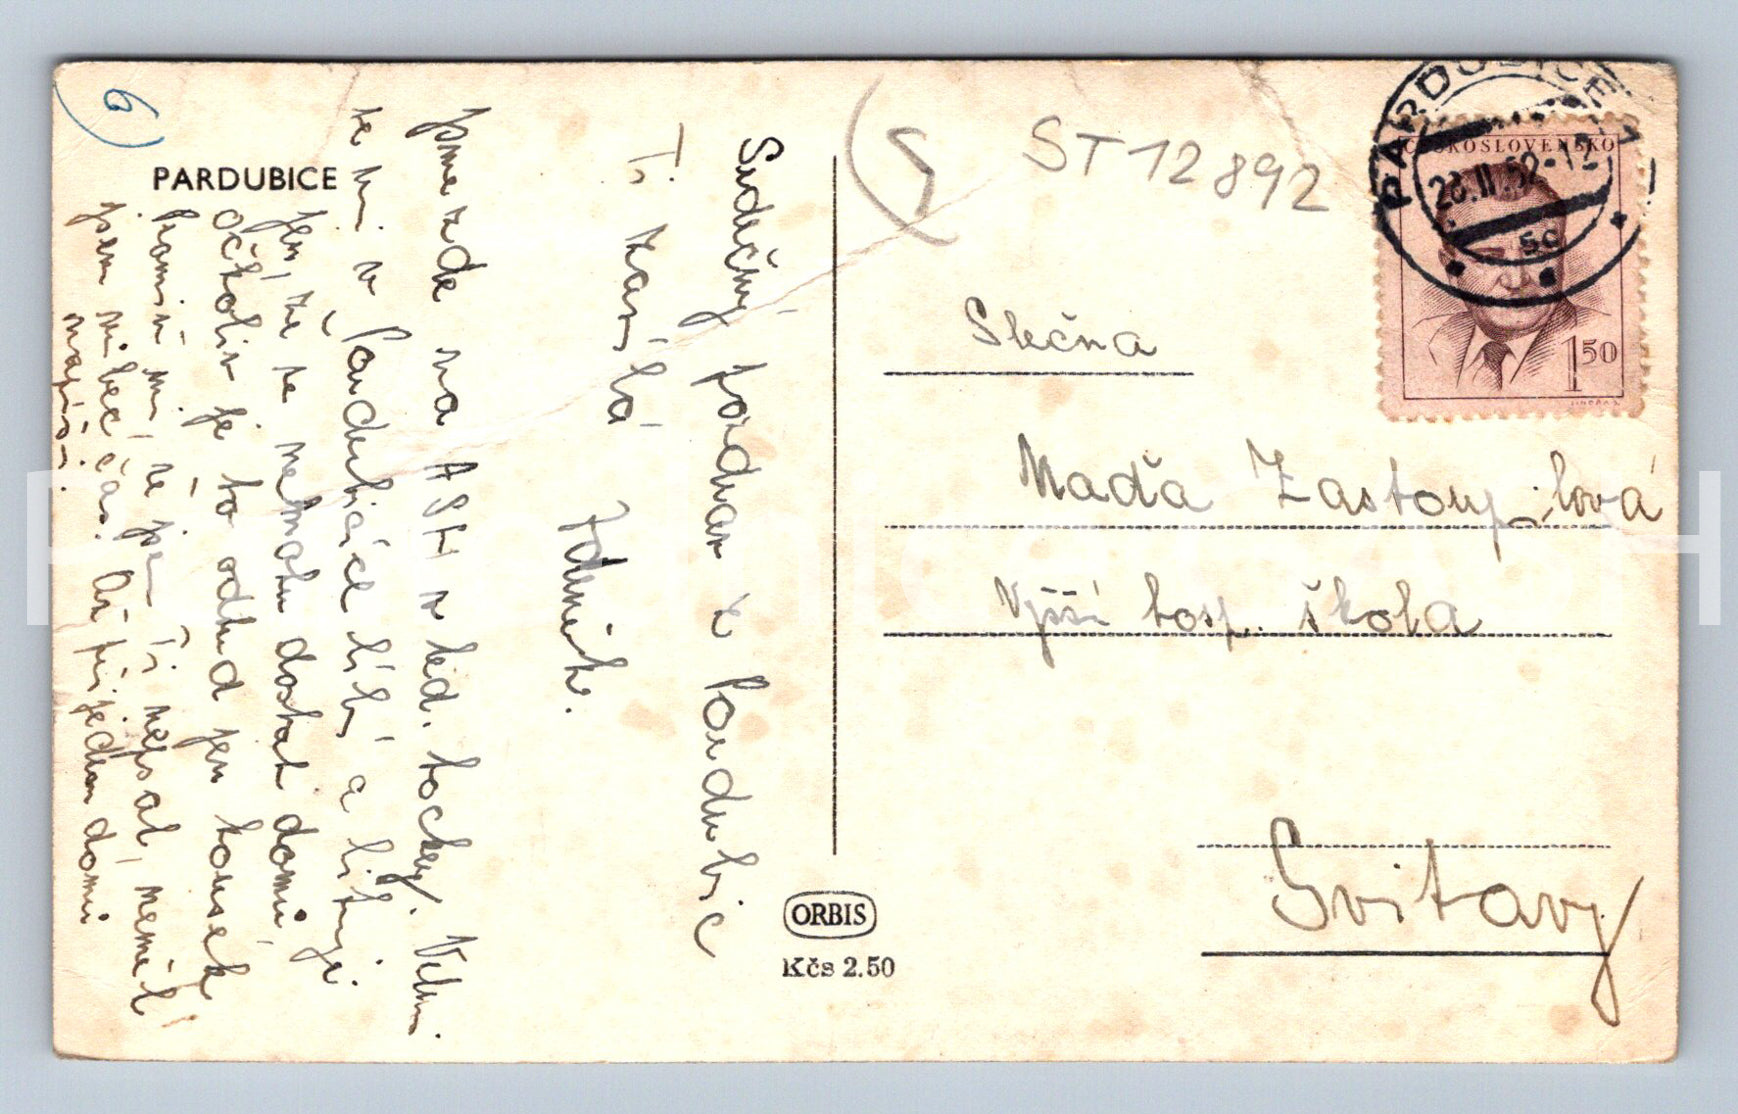 6)
PARDUBICE
Srdečný pozdrav z Pardubic
Ti zasílá
Zdeněk.
Jsme zde na ASH v led. hockey. Velmi
se mi v Pardubicích líbí a lituji
jen, že se nemohu dostat domů,
ačkoliv je to odtud jen kousek
Promiň mi, že jsem Ti nepsal, neměl
jsem vůbec čas. Až přijedem domů
napíši.
(5
ST 12892
PARDUBICE 1
28.II.52-12
5c
ČESKOSLOVENSKO
1 50
Slečna
Naďa Zastoupilová
Vyšší hosp. škola
Svitavy
ORBIS
Kčs 2.50